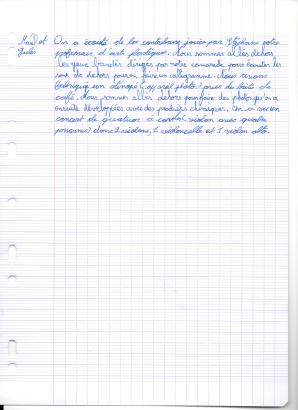 Maël et On a écouté de la contrebasse jouée par Stéphane notre
Jules professeur d'arts plastiques. Nous sommes allés dehors
les yeux bandés dirigés par notre camarade pour écouter les
sons de dehors pour faire un calligramme. Nous avons
fabriqué un sténopé (appareil photo) avec de boîte de
café. Nous sommes allés dehors pour faire des photos qu'on a
ensuite développées avec des produits chimiques. On a vu un
concert de quatuor à cordes (violon avec quatre
personnes) donc 2 violons, 1 violoncelle et 1 violon alto.